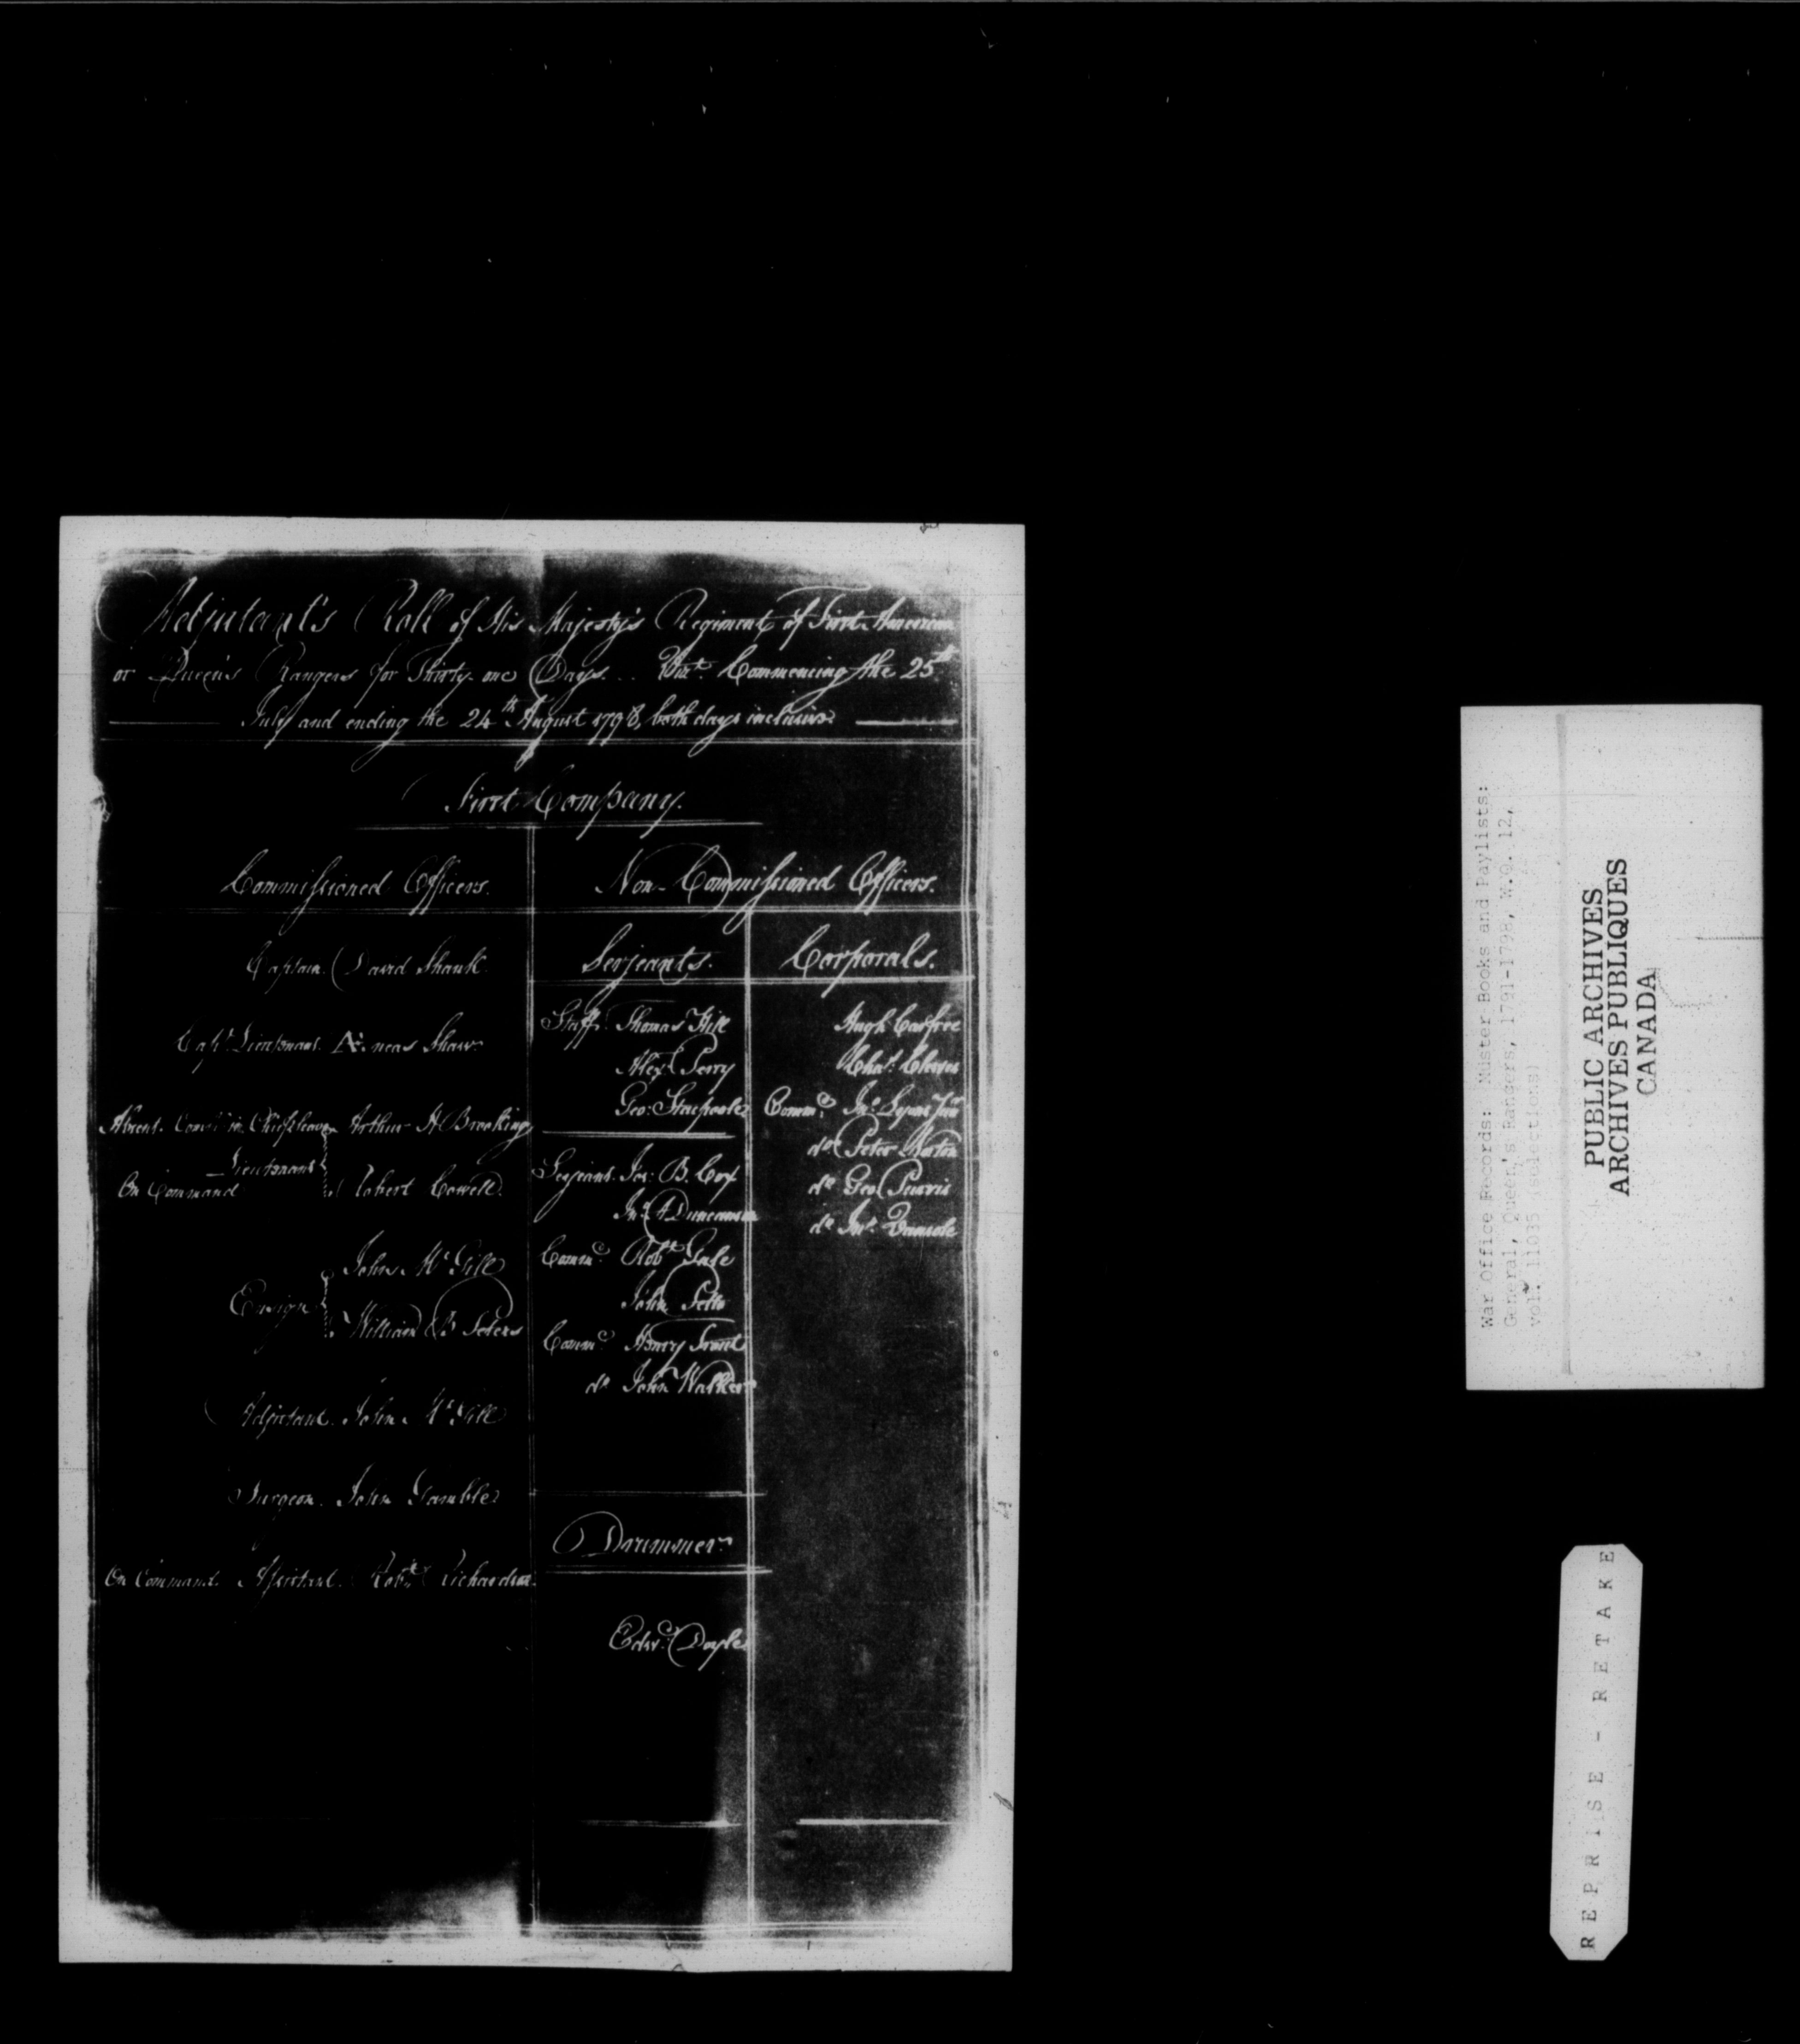 Adjutant's Roll of His Majesty's Regiment of First American
or Queen's Rangers for Thirty one Days... Vizt. Commencing the 25th
July and ending the 24th August 1798, both days inclusive
First Company.
Commissioned Officers.
Captain David Shank
Capt. Lieutenant Æneas Shaw
Absent. Comdr. in Chief's leave Arthur H Brooking
Lieutenant
On Command Robert Cowell
John McGill
Ensign
William B Peters
Adjutant John McGill
Surgeon John Gamble
On Command Assistant Robt. Richardson
Non-Commissioned Officers.
Serjeants.
Staff Thomas Hill
Alexr. Perry
Geo: Stacpoole
Serjeants Jos: B. Cox
Jno. Duncanson
Commd. Robt. Gale
John
Commd. Henry
do. John Walker
Drummer
Edwd. Doyle
Corporals.
Hugh Carfrae
Chas.
Commd. Jno. Junr.
do. Peter
do. Geo Purvis
do. Jno.
War Office Records: Muster Books and Paylists:
General, Queen's Rangers, 1791-1798, W.O. 12,
vol. 11035 (selections)
PUBLIC ARCHIVES
ARCHIVES PUBLIQUES
CANADA
REPRISE - RETAKE